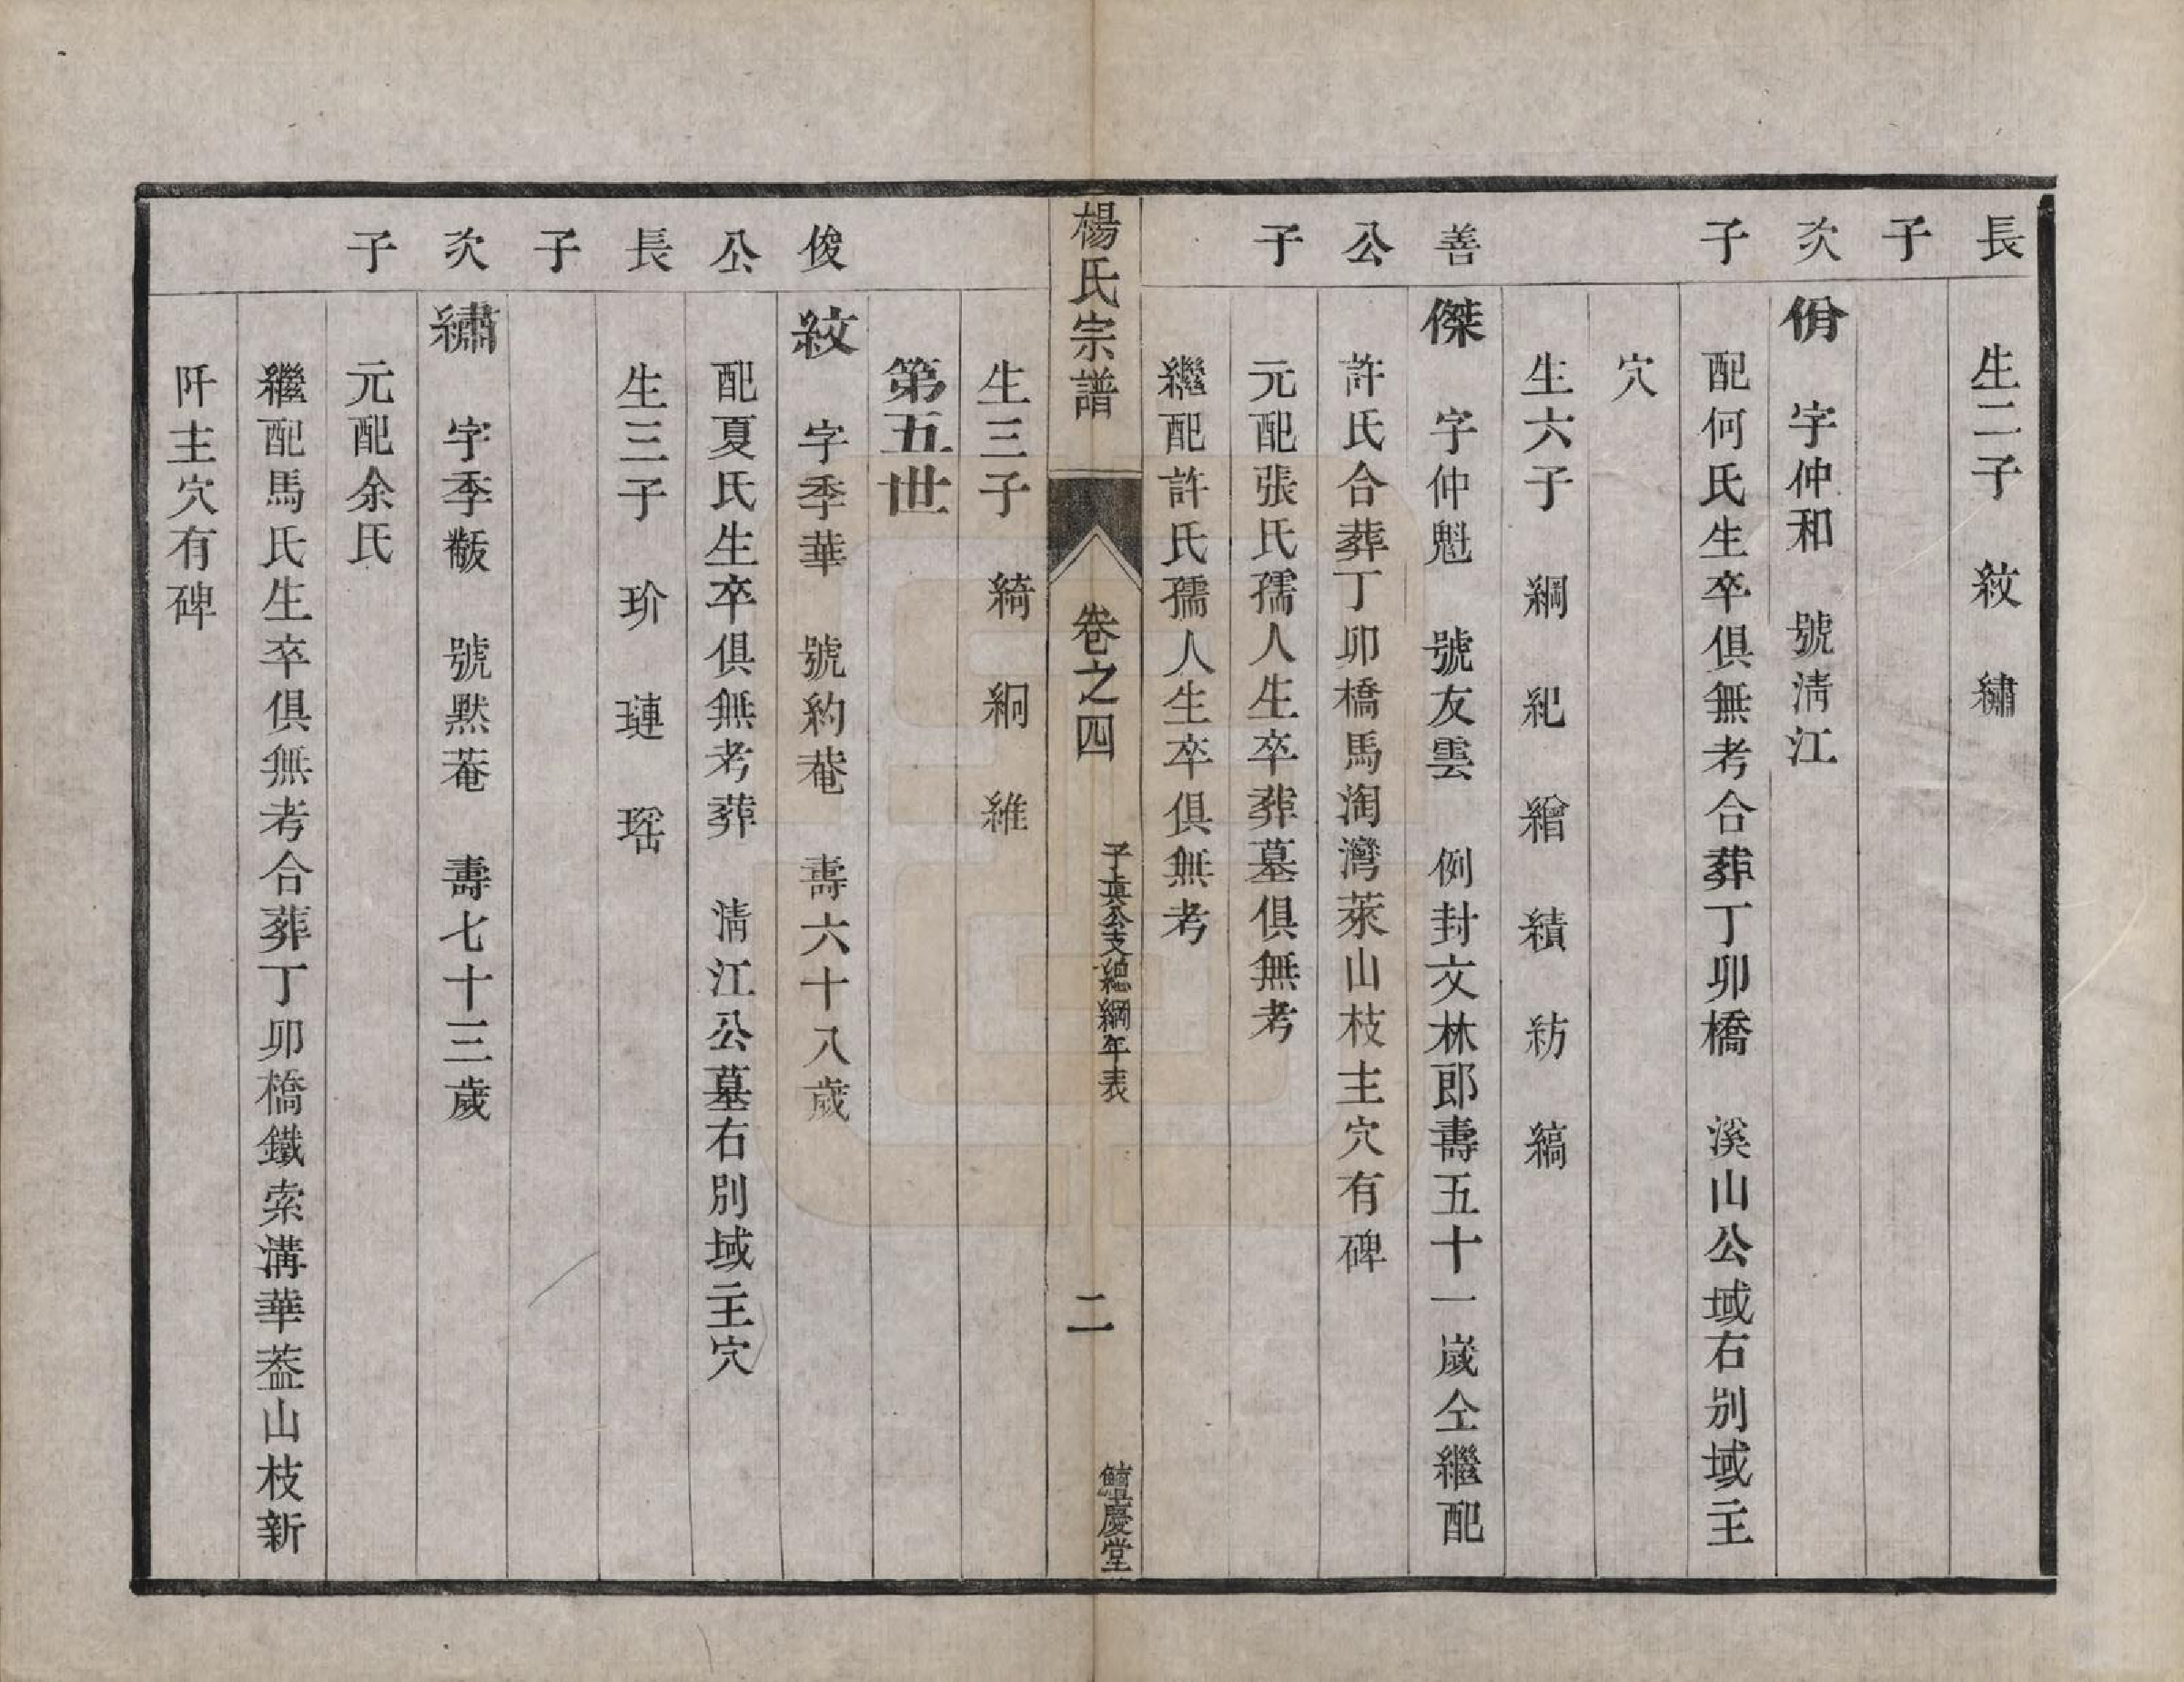 長
生二子　紋　繡
子
次
佾　字仲和　號淸江
子
配何氏生卒俱無考合葬丁卯橋　溪山公域右别域主
穴
生六子　綱　紀　繪　績　紡　縞
善
傑　字仲魁　號友雲　例封文林郎壽五十一歲仝繼配
公
許氏合葬丁卯橋馬淘灣萊山枝主穴有碑
子
元配張氏孺人生卒葬墓俱無考
繼配許氏孺人生卒俱無考
楊氏宗譜
卷之四
子真公支總綱年表
二
鱣慶堂
生三子　綺　絅　維
第五世
俊
紋　字季華　號約菴　壽六十八歲
公
配夏氏生卒俱無考葬　淸江公墓右別域主穴
長
生三子　玠　璉　瑶
子
次
繡　字季黻　號黙菴　壽七十三歲
子
元配余氏
繼配馬氏生卒俱無考合葬丁卯橋鐵索溝華葢山枝新
阡主穴有碑